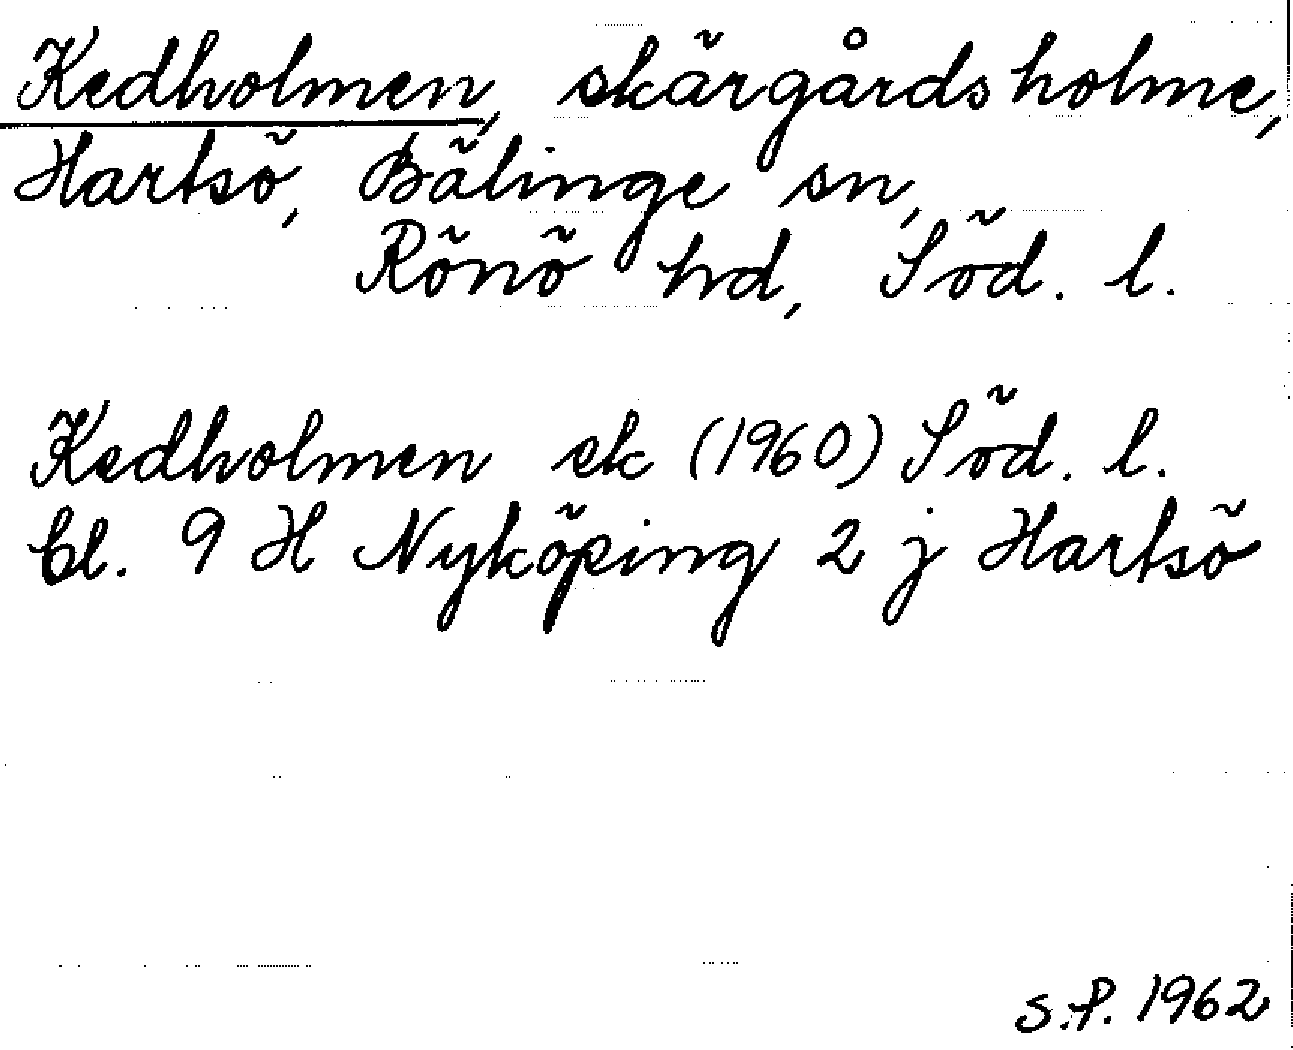 Kedholmen, skärgårdsholme,
Hartsö, Bälinge sn,
Rönö hd, Söd. l.
Kedholmen ek (1960) Söd. l.
bl. 9 H Nyköping 2 j Hartsö
S.P. 1962